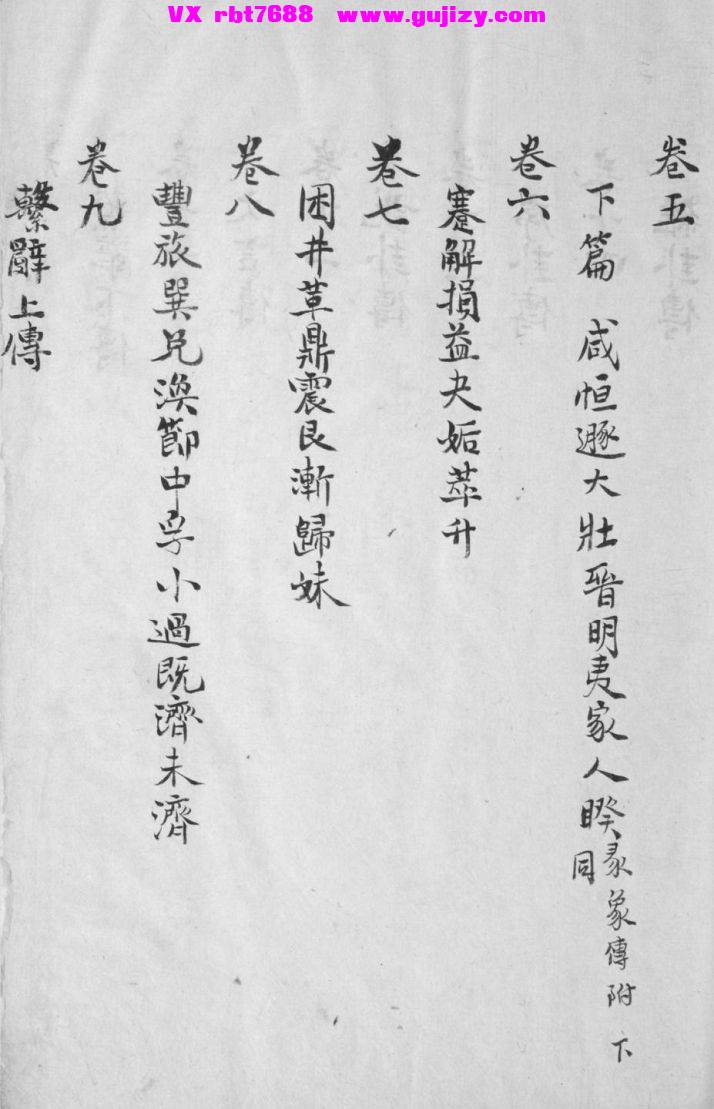 VX rbt7688 www.gujizy.com
卷五
下篇 咸恒遯大壯晉明夷家人睽彖象傳附下同
卷六
蹇解損益夬姤萃升
卷七
困井革鼎震艮漸歸妹
卷八
豐旅巽兌渙節中孚小過既濟未濟
卷九
繫辭上傳